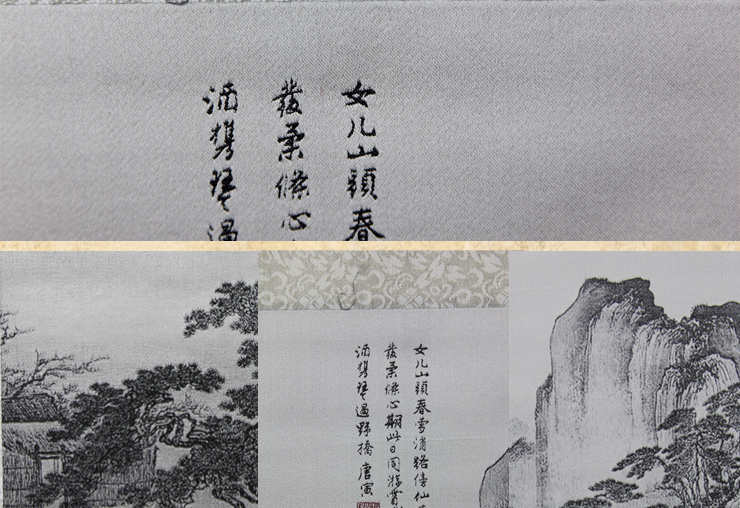 女几山頭春
發柔條心
酒攜琴過
女几山頭春雪消路傍仙
發柔條心期此日同游賞
酒攜琴過野橋 唐寅